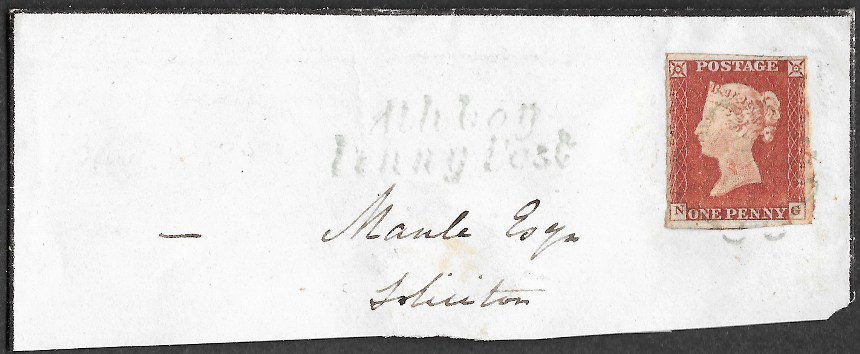 POSTAGE
N ONE PENNY G
Athboy
Penny Post
— Maule Esqr
Solicitor